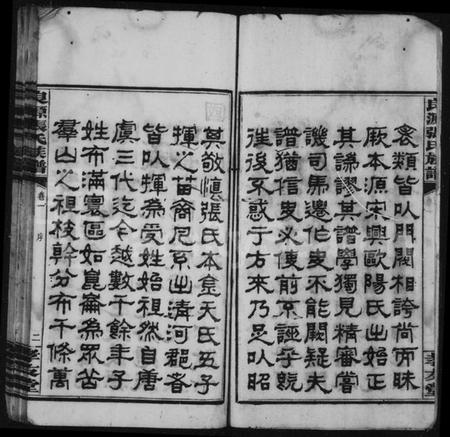 良源張氏族譜
禽類皆以門閥相誇尚而昧
厥本源宋興歐陽氏出始正
其謬其譜學獨見精審嘗
譏司馬遷作史不能闕疑夫
譜猶信史必使前不誣乎既
往後不惑于方來乃足以昭
其敬慎張氏本軒天氏五子
揮之苗裔凡系出清河郡者
皆以揮為受姓始祖然自唐
虞三代迄今越數千餘年子
姓布滿寰區如崑崙為眾岳
羣山之祖枝幹分布千條萬
良源張氏族譜
卷一
序
二
孝友堂
孝友堂